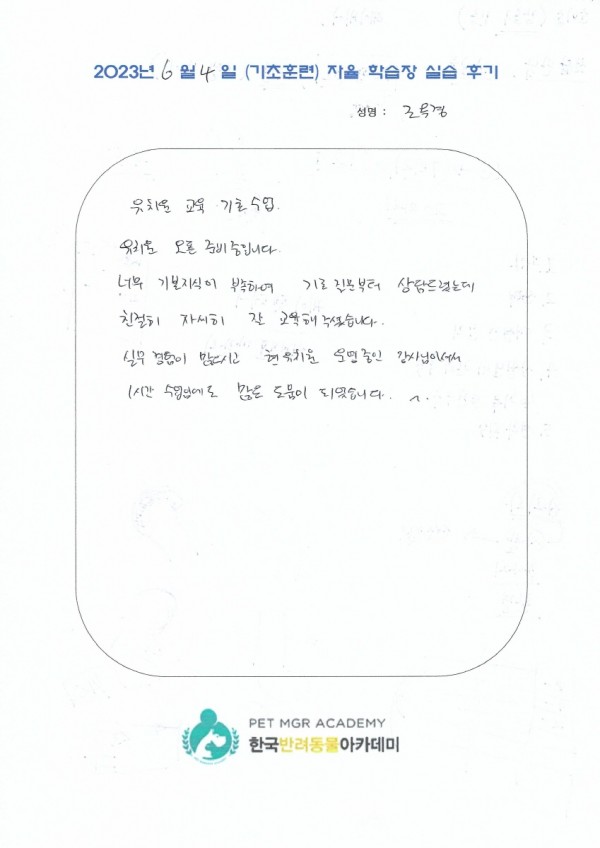 2023년 6 월 4 일 (기초훈련) 자율 학습장 실습 후기
성명 : 조육경
유치원 교육 기초수업.
유치원 오픈 준비중입니다.
너무 기본지식이 부족하여 기초 질문부터 상담드렸는데
친절히 자세히 잘 교육해주셨습니다.
실무 경험이 많으시고 현 유치원 운영중인 강사님이셔서
1시간 수업임에도 많은 도움이 되었습니다. ^.
PET MGR ACADEMY
한국반려동물아카데미